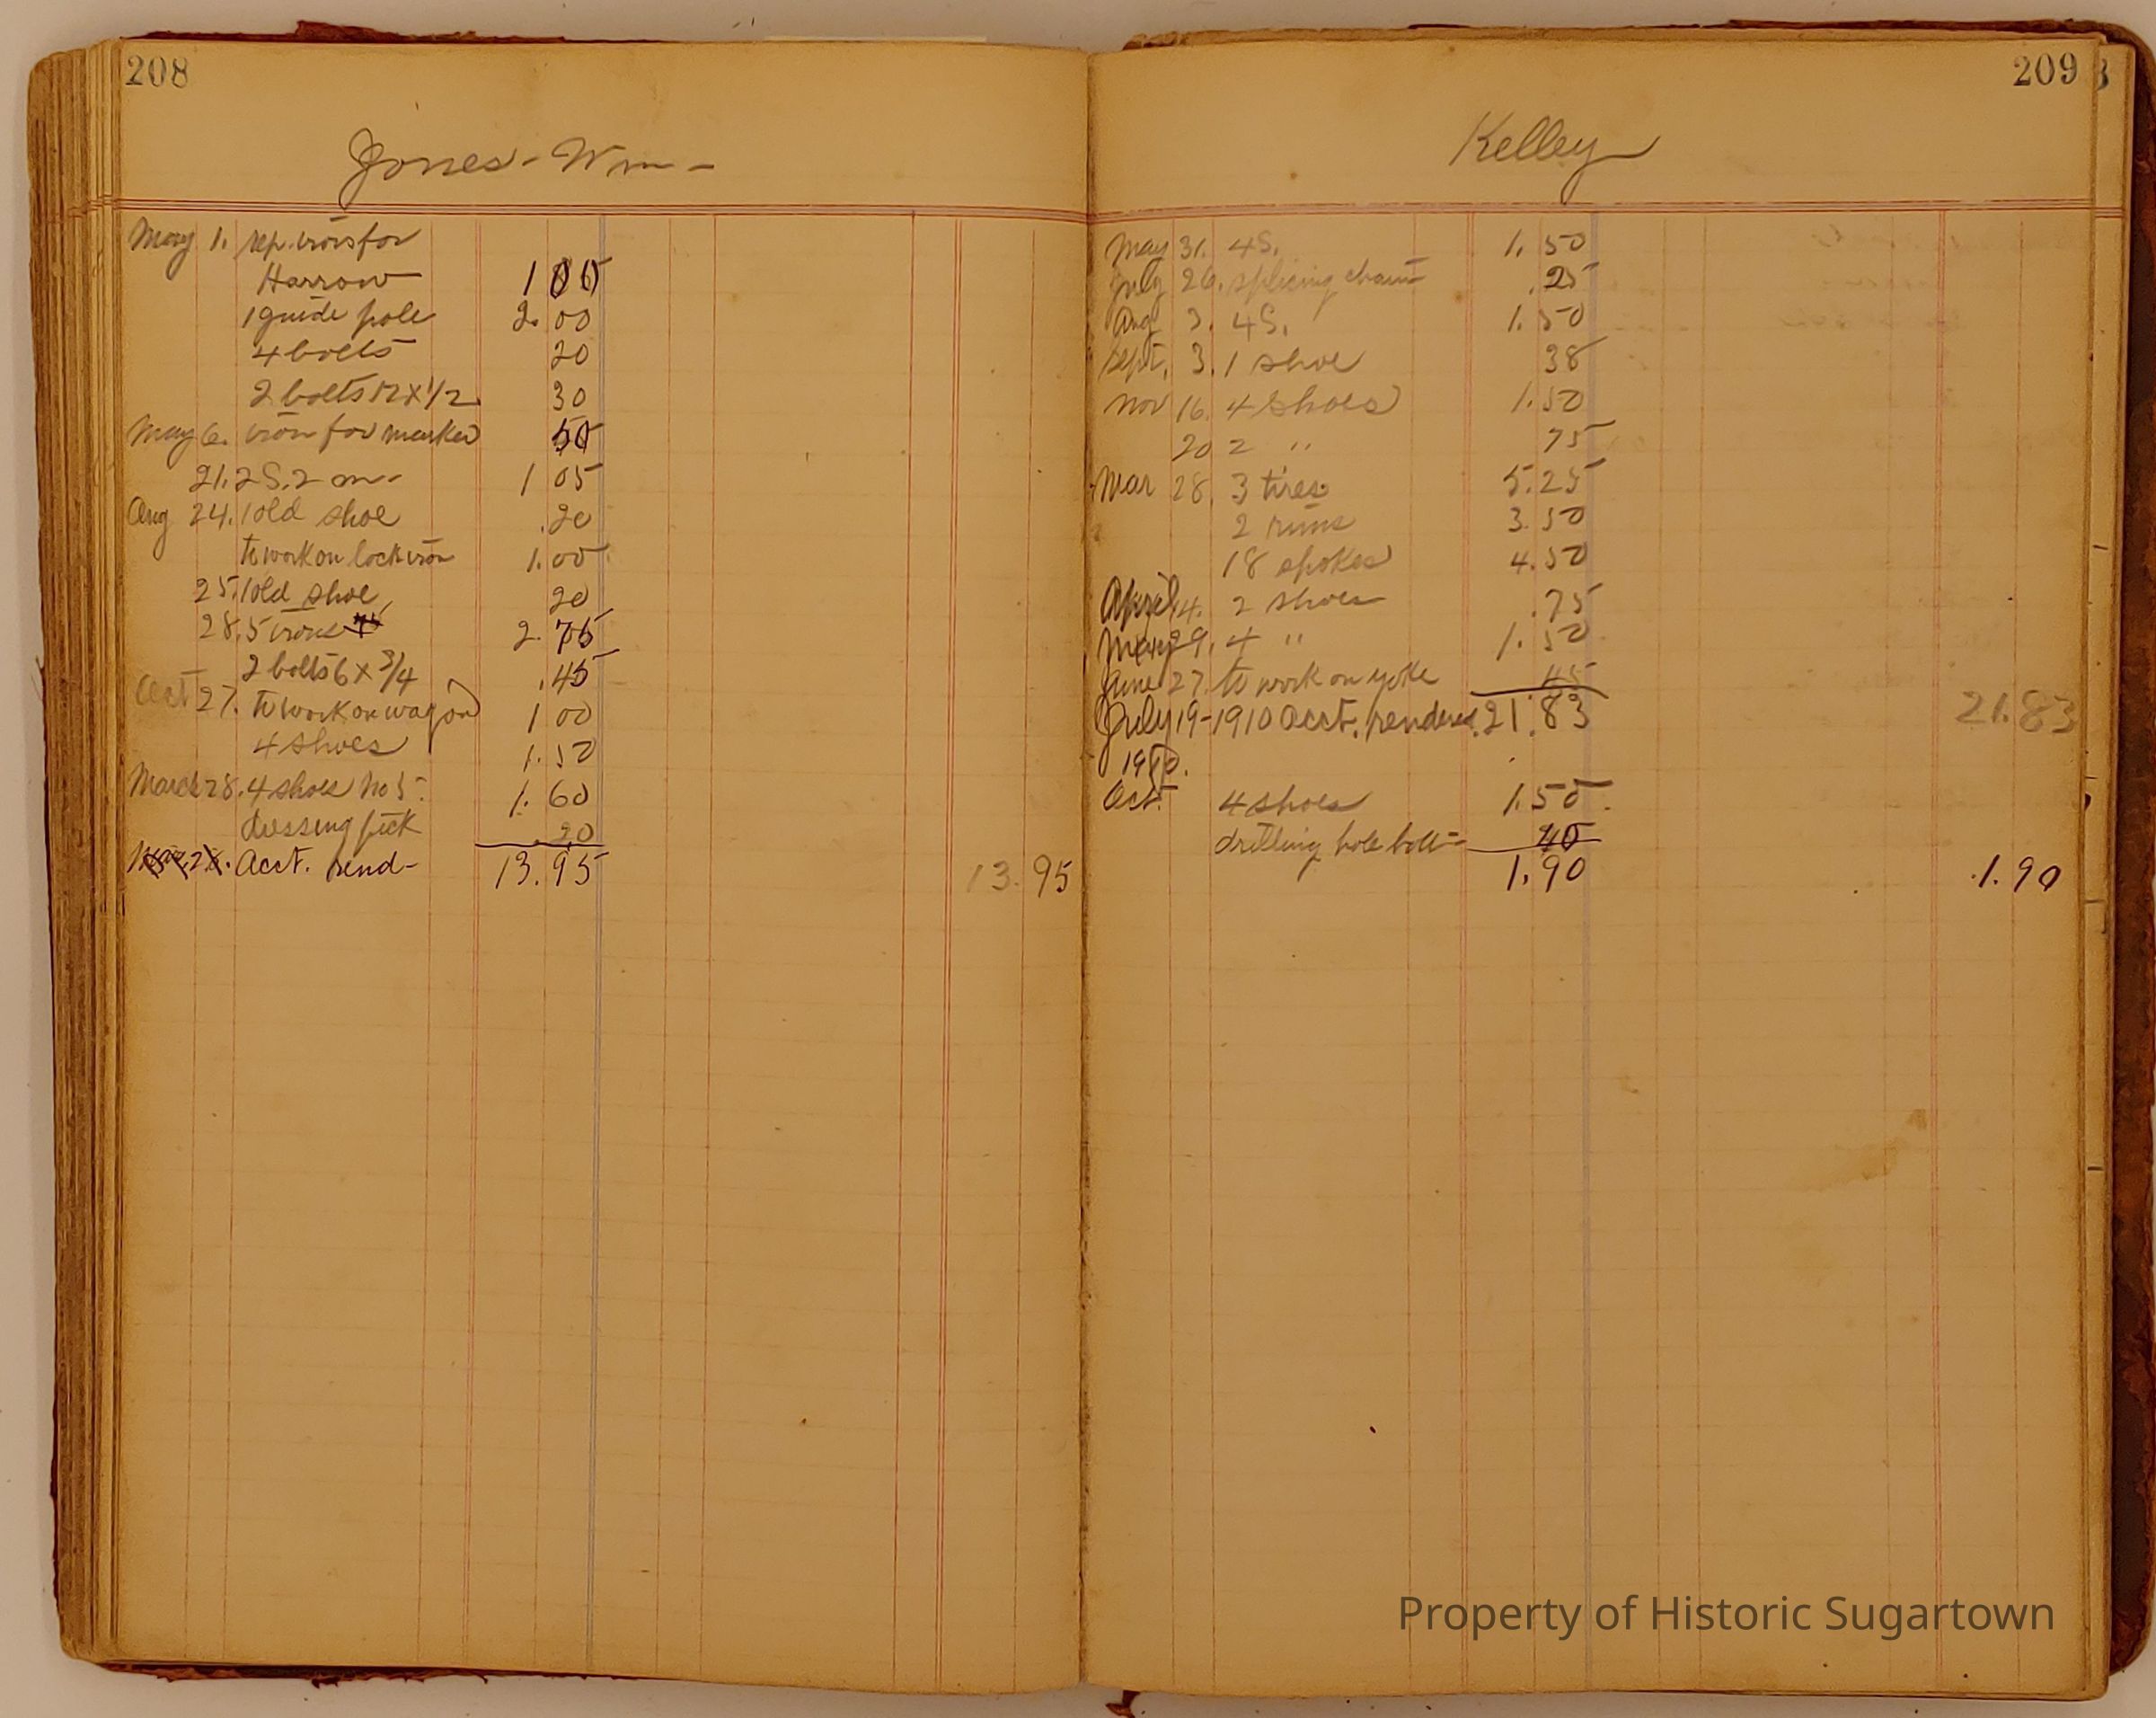 208
Jones - Wm -
May 1. rep. irons for
Harrow 1 00
1 guide pole 2. 00
4 bolts 20
2 bolts 12 x 1/2 30
May 6. iron for marker 50
21. 2 S. 2 m - 1 05
Aug 24. 1 old shoe .20
to work on lock iron 1.00
25. 1 old shoe 20
28. 5 irons 2. 75
2 bolts 6 x 3/4 .45
Oct 27. to work on wagon 1 00
4 shoes 1. 50
March 28. 4 shoes No 5. 1. 60
dressing pick .20
Acct. rend - 13.95 13.95
209
Kelley
May 31. 4 S. 1. 50
July 26. splicing chain .25
Aug 3. 4 S. 1. 50
Sept. 3. 1 shoe 38
Nov 16. 4 shoes 1.50
20 2 " 75
Mar 28. 3 tires 5.25
2 rims 3.50
18 spokes 4.50
April 4. 2 shoes .75
May 29. 4 " 1. 50
June 27. to work on yoke 45
July 19 - 1910 Acct. rendered. 21.83 21.83
1910.
Oct. 4 shoes 1.50
drilling hole bolt - 40
1.90 1.90
Property of Historic Sugartown